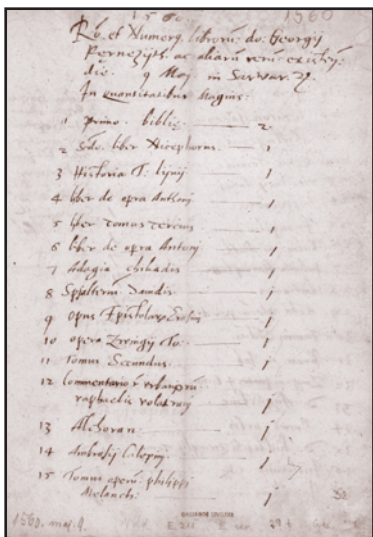 1560
1560
Rō. et Numerq. librorū: do: Georgij
Pernezijth. ac aliarū rerū
die. 9 Maij. in Sarwar.
In quantitatibus Magnis:
1 primo. bibliȩ. 2.
2 Sedo. liber Nicephorus. 1
3 Historia T: Lyuij 1
4 liber de opra Anthonij 1
5 liber Tomus Tercius 1
6 liber de opra Antonij 1
7 Adagia chiliadis 1
8 Spsalterium Dauidis 1
9 opus Epistolarȝ Erasmi 1
10 opera To: 1
11 Tomus Secundus: 1
12 Commentarior vrbanorū
raphaelis volaterani 1
13 Alchoran: 1
14 Ambrosij Calepinj: 1
15 Tomus operū: philippi
Melanch: 1
1560. maj. 9.